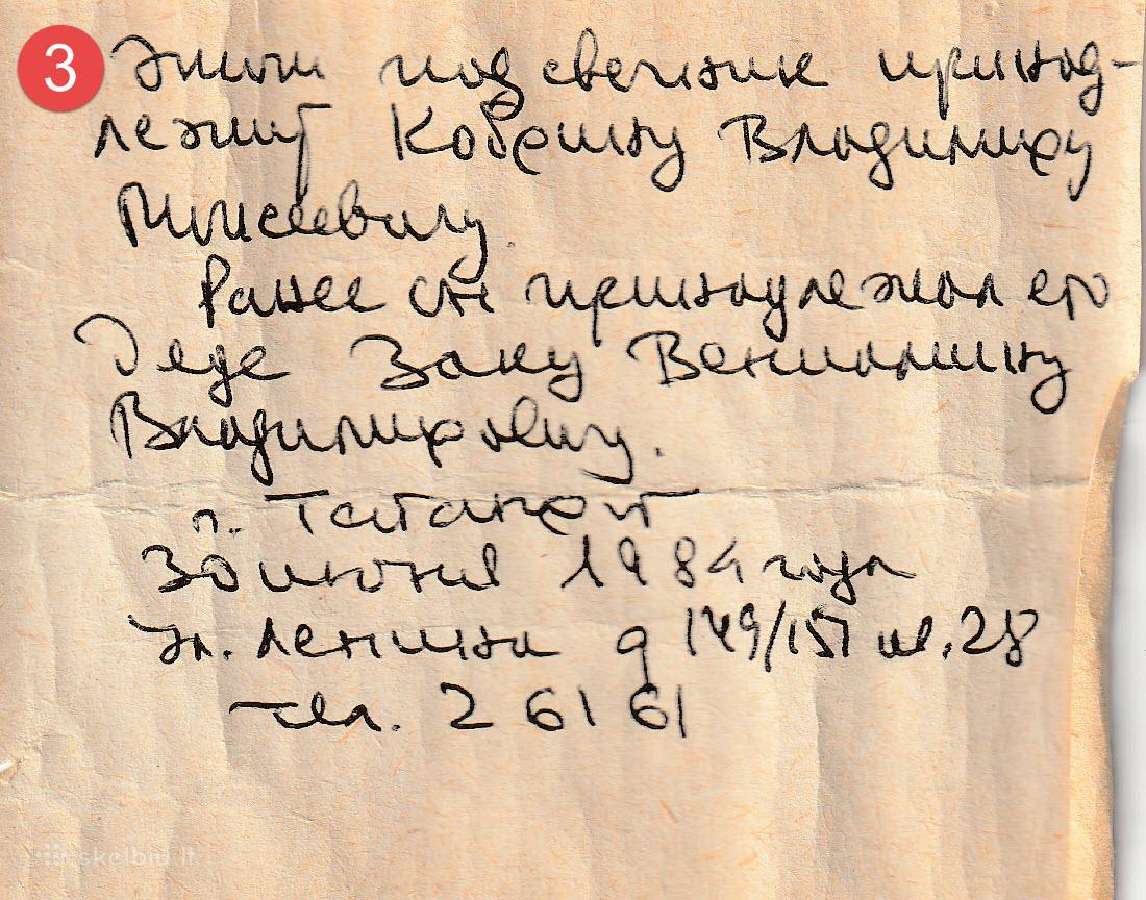 3
Этот подсвечник принад-
лежит Кобрину Владимиру
Моисеевичу.
Ранее он принадлежал его
Деде Заку Вениамину
Владимировичу.
г. Таганрог
30 июня 1984 года
ул. Ленина д 149/151 кв. 28
тел. 2 61 61
skelbiu.lt